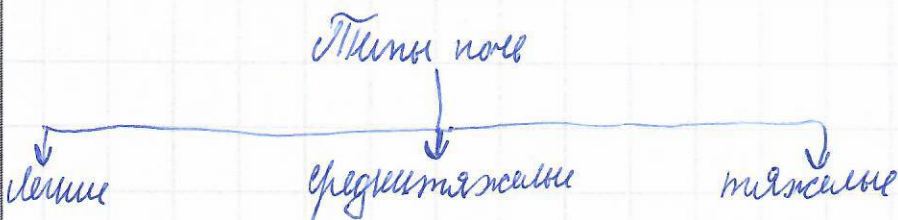 Типы почв
легкие среднетяжелые тяжелые